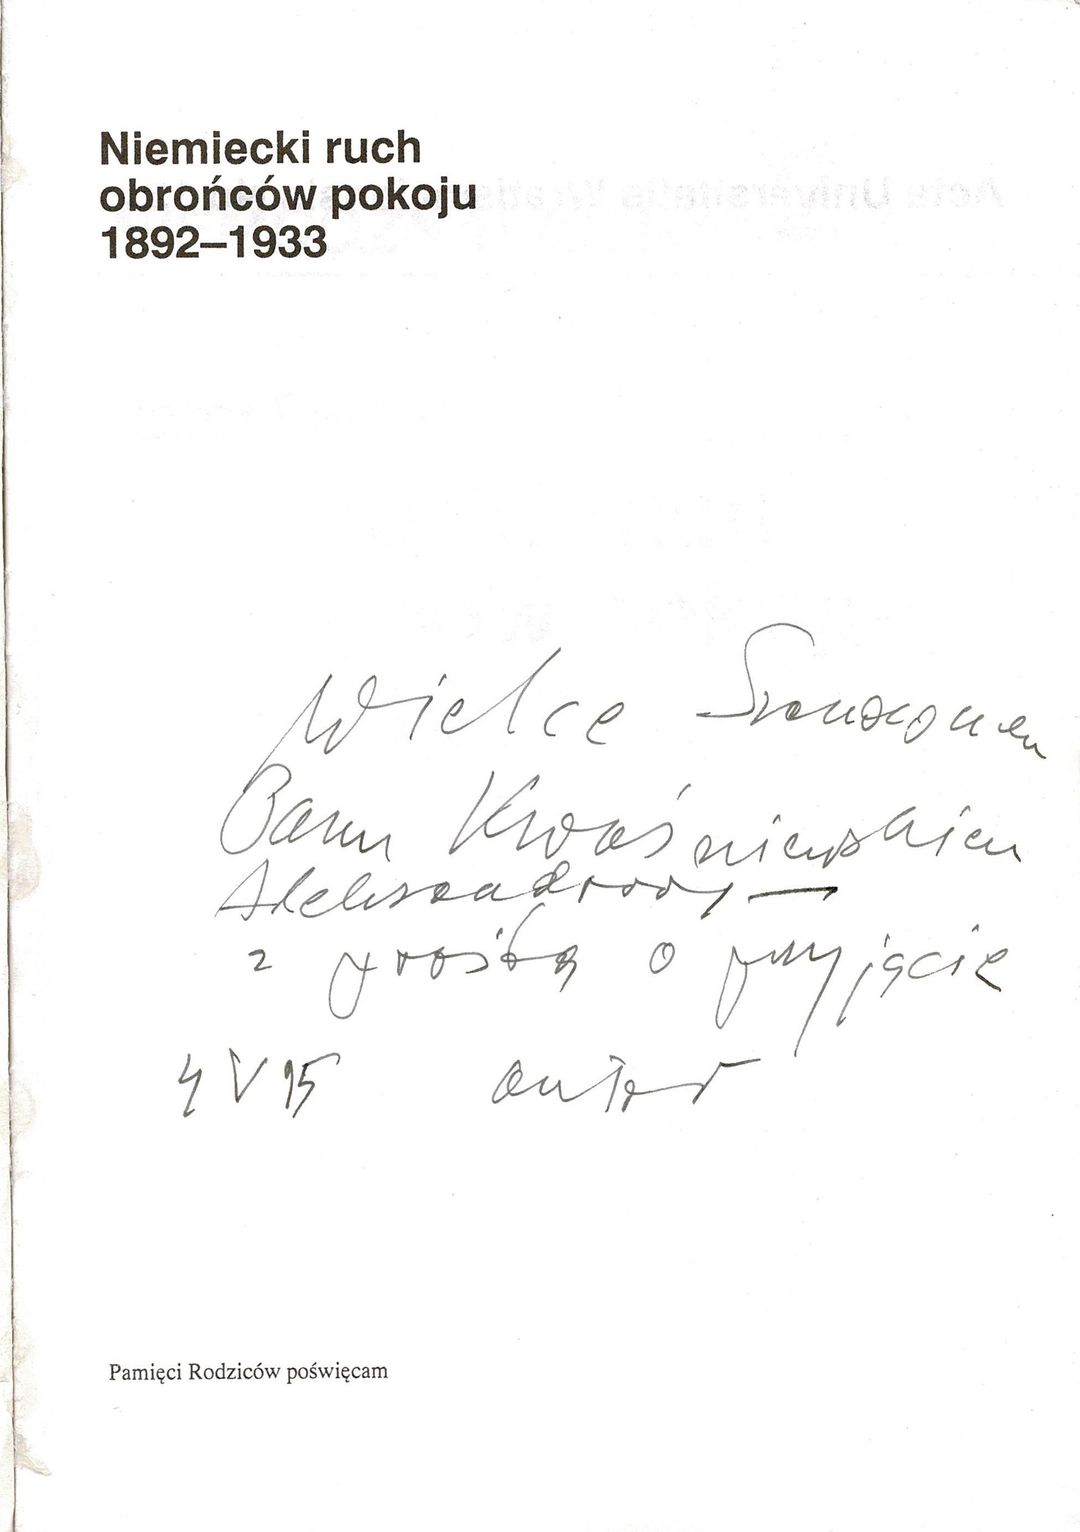 Niemiecki ruch
obrońców pokoju
1892–1933
Wielce Szanownemu
Panu Kwaśniewskiemu
Aleksandrowi —
z prośbą o przyjęcie
4 V 95 autor
Pamięci Rodziców poświęcam